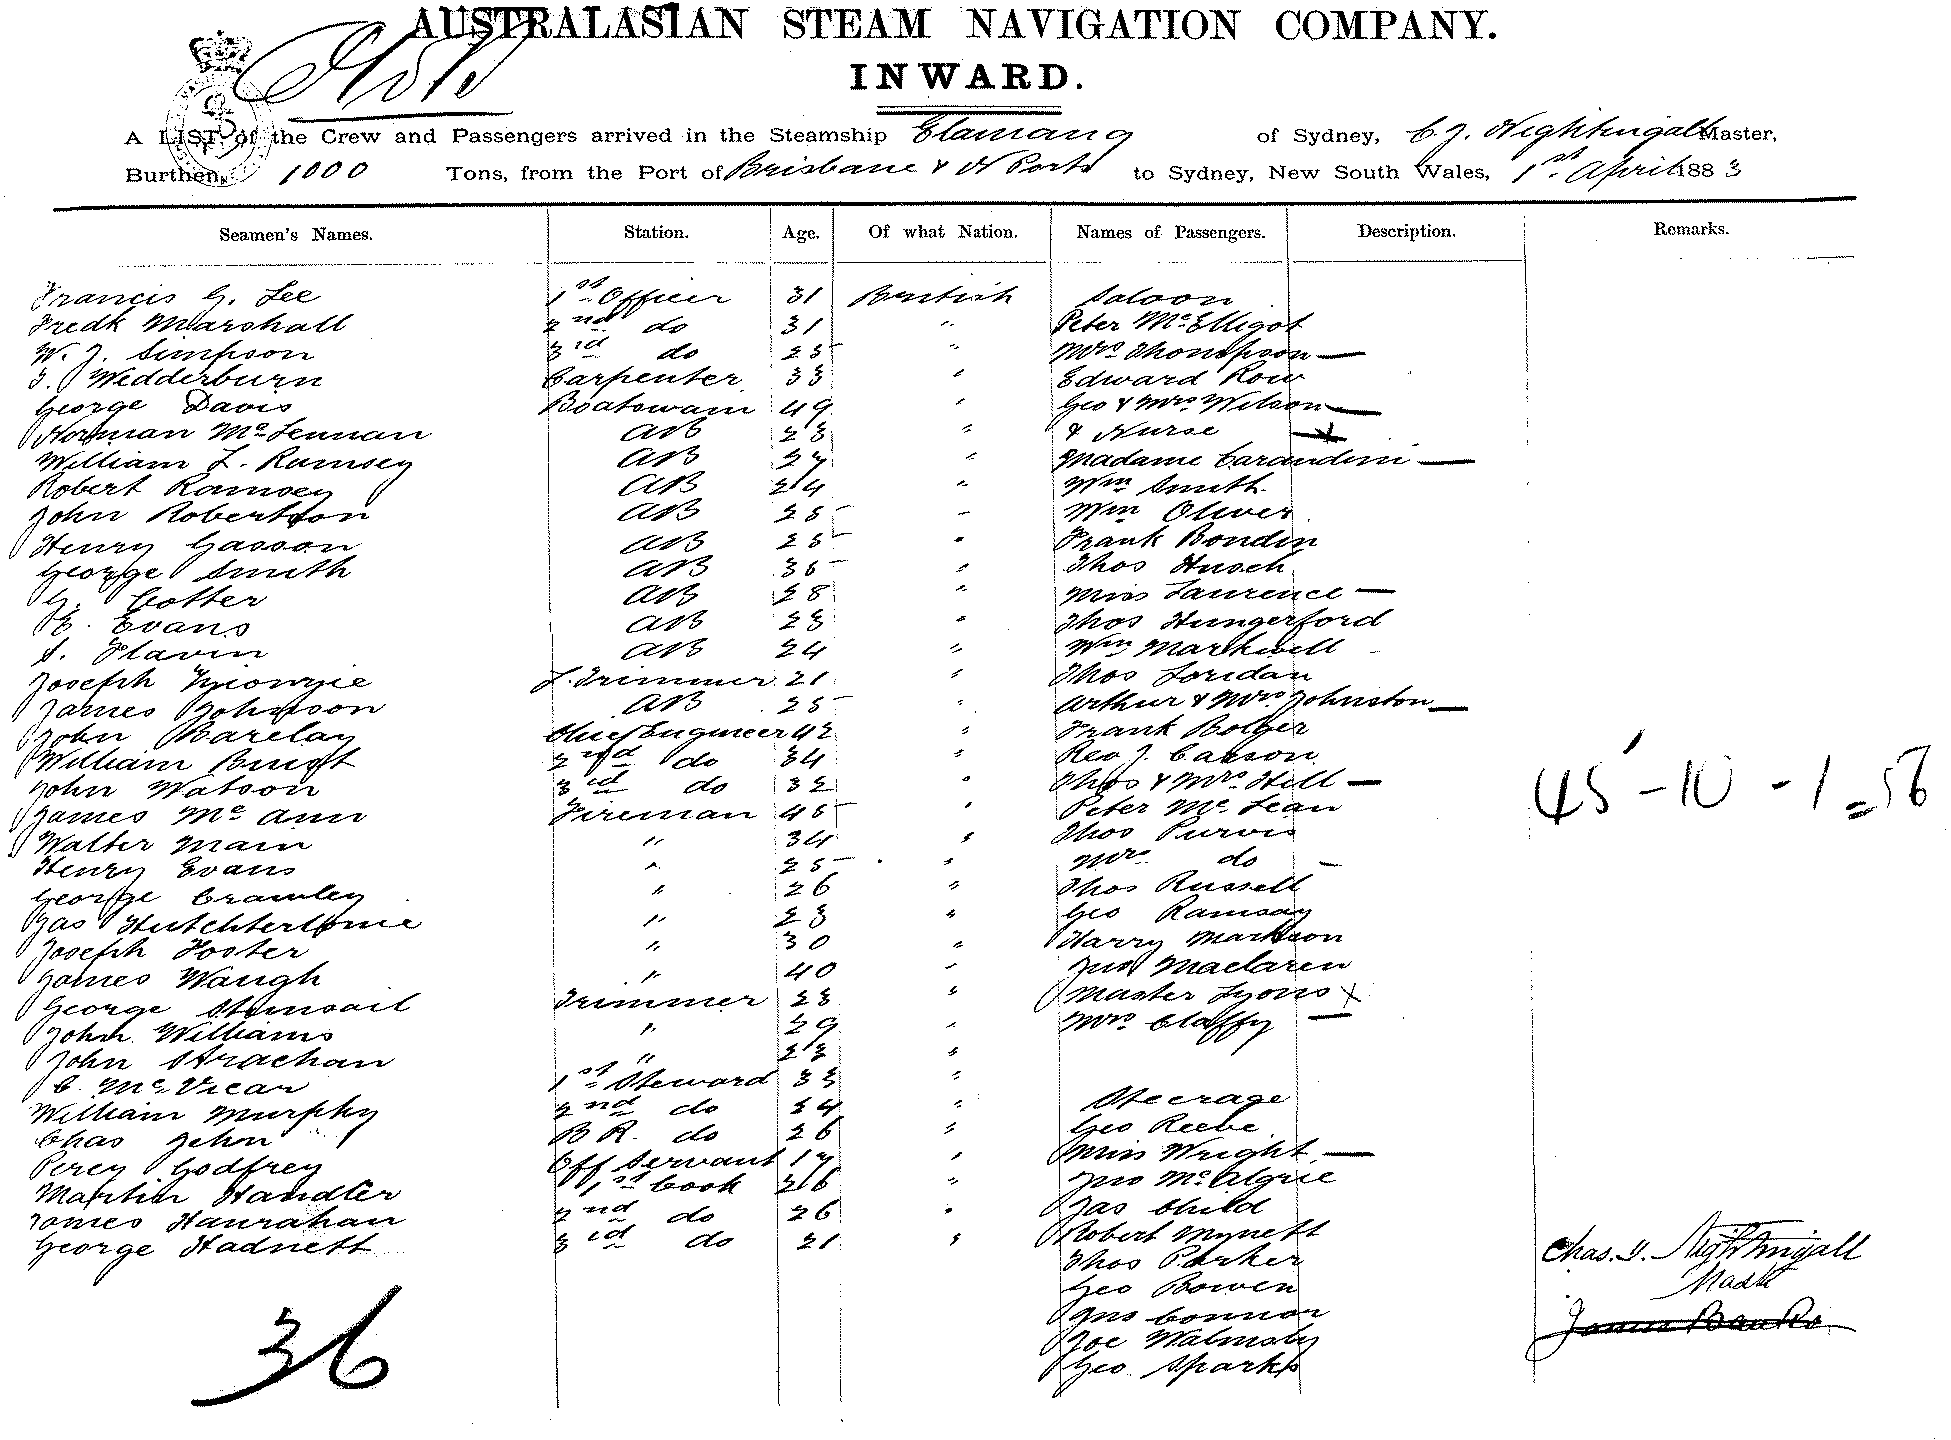 AUSTRALASIAN STEAM NAVIGATION COMPANY.
INWARD.
A LIST of the Crew and Passengers arrived in the Steamship Elamang of Sydney, C. J. Nightingall Master,
Burthen, 1000 Tons, from the Port of Brisbane & N Ports to Sydney, New South Wales, 1st April 1883
Seamen's Names. Station. Age. Of what Nation. Names of Passengers. Description. Remarks.
Francis G. Lee 1st Officer 31 British Saloon
Fredk Marshall 2nd do 31 " Peter McElligot
W. J. Simpson 3rd do 25 " Mrs Thompson —
J. Wedderburn Carpenter 33 " Edward Row
George Davis Boatswain 49 " Geo & Mrs Wilson —
Norman McLennan AB 23 " & Nurse
William L. Ramsey AB 27 " Madame Carandini —
Robert Ramsey AB 24 " Wm Smith
John Robertson AB 25 " Wm Oliver
Henry Gasson AB 25 " Frank Bondin
George Smith AB 35 " Thos Husch
G. Cotter AB 28 " Miss Laurence —
E. Evans AB 23 " Thos Hungerford
S. Flavin AB 24 " Wm Markwell
Joseph L. Trimmer 21 " Thos Loridan
James Johnson AB 25 " Arthur & Mrs Johnston —
John Barclay Chief Engineer 42 " Frank Bolger
William Buist 2nd do 34 " Rev J. Carson
John Watson 3rd do 32 " Thos & Mrs Hill —
James McAnn Fireman 45 " Peter McLean
Walter Main " 34 " Thos Purvis
Henry Evans " 25 " Mrs do —
George Crawley " 26 " Thos Russell
Jas " 23 " Geo Ramsay
Joseph Foster " 30 " Harry Markson
James Waugh " 40 " Jno Maclaren
George Trimmer 23 " Master Lyons x
John Williams " 29 " Mrs Claffy —
John Strachan " 22 "
C. McVicar 1st Steward 33 "
William Murphy 2nd do 24 " Steerage
Chas Jehn B R. do 26 " Geo Reeve
Percy Godfrey Off Servant 17 " Miss Wright —
Martin Handler 1st Cook 26 " Jno McAlquie
James Hanrahan 2nd do 26 " Jas Child
George Hadnett 3rd do 21 " Robert Mynett
Thos Parker
Geo Bowen
Jno Connor
Joe Walmsby
Geo Sparks
45 - 10 - 1 = 56
Chas. J. Nightingall
Mastr
James Banks
36